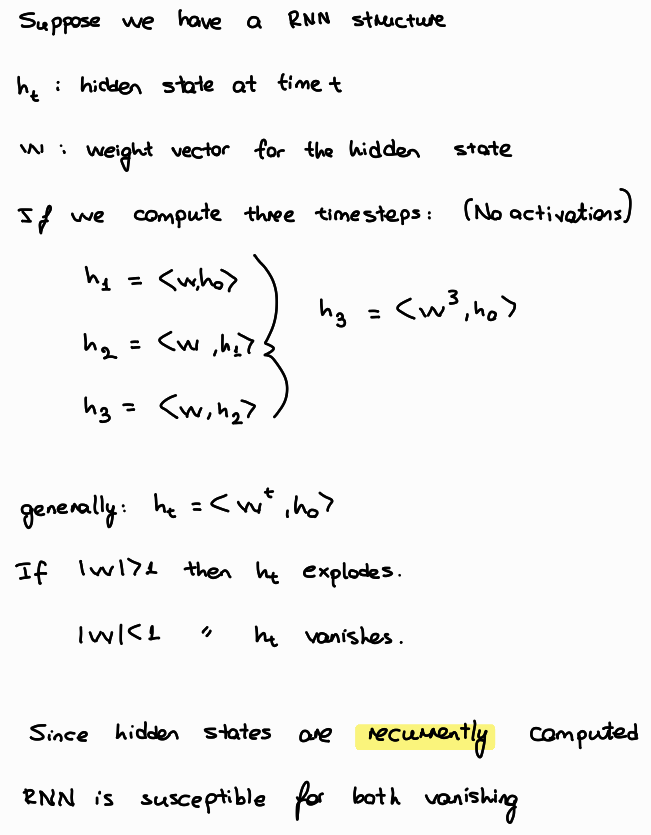 Suppose we have a RNN structure
h_t : hidden state at time t
w : weight vector for the hidden state
If we compute three timesteps: (No activations)
h_1 = <w,h_0>
h_3 = <w^3, h_0>
h_2 = <w, h_1>
h_3 = <w, h_2>
generally: h_t = <w^t, h_0>
If |w|>1 then h_t explodes.
|w|<1 " h_t vanishes.
Since hidden states are recurrently computed
RNN is susceptible for both vanishing